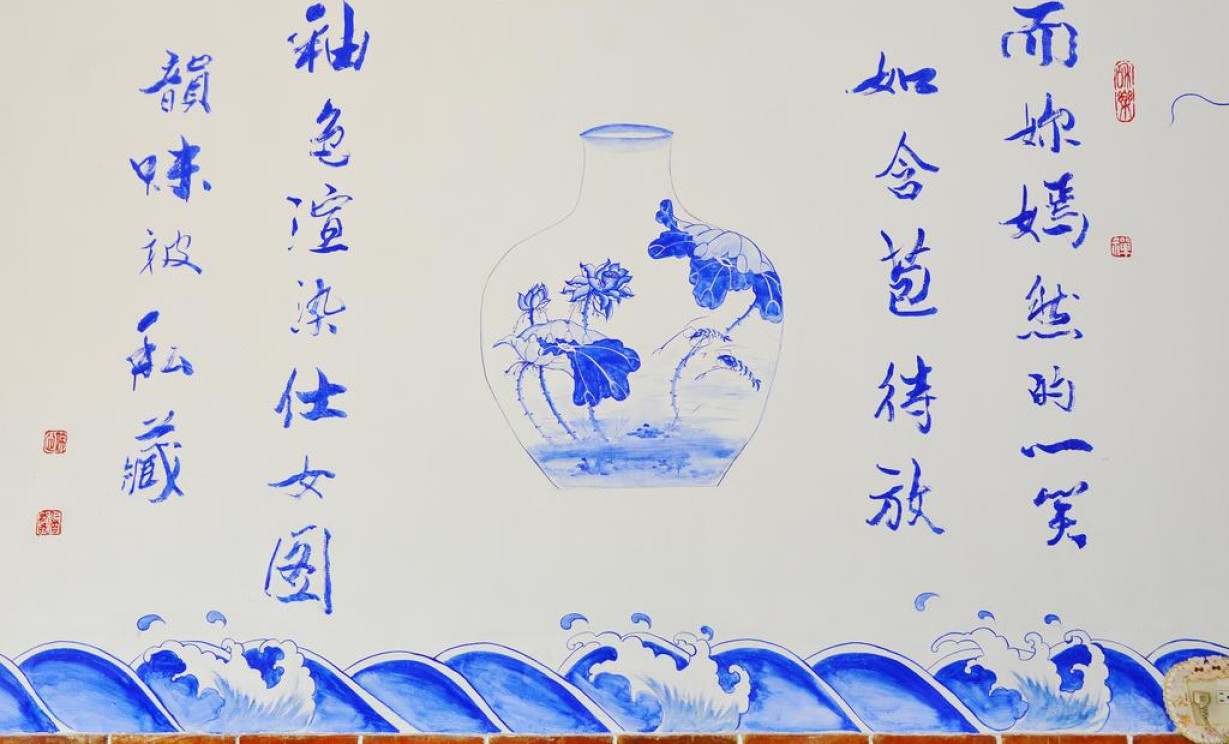 而妳嫣然的一笑
如含苞待放
釉色渲染仕女图
韻味被私藏